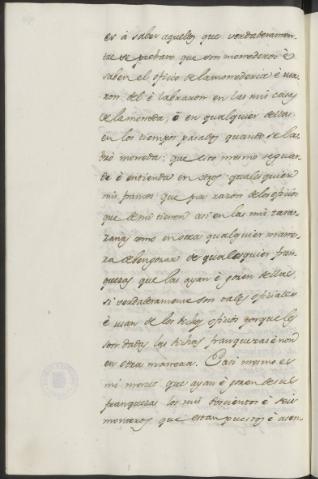 es á saber aquellos que verdaderamen-
te se probare que son monederos é
saben el oficio de la monedería é usa-
ron del é labraron en las mis casas
de la moneda, ó en qualquier dellas
en los tiempos pasados quando se la-
bró moneda: que eso mesmo se guar-
de é entienda en otros qualesquier
mis francos que por razon de los oficios
que de mi tienen asi en las mis tara-
zanas como en otra qualquier mane-
ra de qualesquier fran-
quezas que las ayan é gocen dellas
si verdaderamente son tales oficiales
é usan de los dichos oficios porque les
son dadas las dichas franquezas é non
en otra manera. Otrosi mesmo es
mi merced que ayan é gocen de sus
franquezas los mis docientos é seis
monteros que estan puestos é asen-